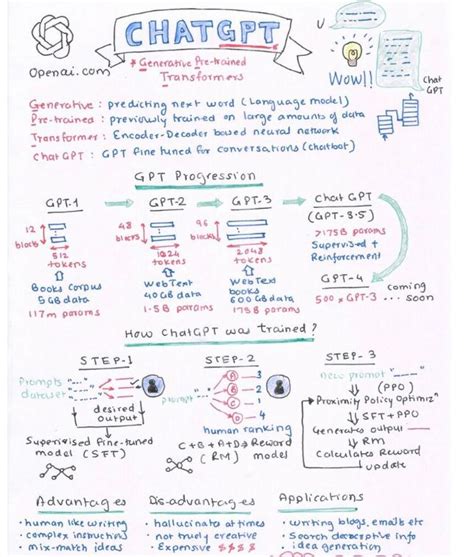 CHATGPT
Openai.com
* Generative Pre-trained
Transformers
Wow!!
Chat
GPT
Generative : predicting next word (Language model)
Pre-trained : previously trained on large amounts of data
Transformer : Encoder-Decoder based neural network
Chat GPT : GPT fine tuned for conversations (chatbot)
GPT Progression
GPT-1
GPT-2
GPT-3
Chat GPT
(GPT-3.5)
12
blocks
48
blocks
96
blocks
>175B params
Supervised +
Reinforcement
512
tokens
1024
tokens
2048
tokens
Books Corpus
5GB data
117m params
WebText
40GB data
1.5B params
WebText
books
600GB data
175B params
GPT-4
500 x GPT-3 ... coming
soon
How ChatGPT was trained?
STEP-1
STEP-2
STEP-3
Prompts
dataset
desired
output
Supervised fine-tuned
model (SFT)
Prompt
A 3
B 1
C 2
D 4
human ranking
C+B+A+D → Reward
(RM) model
new prompt
(PPO)
Proximity Policy Optimiz"
SFT+PPO
Generates output
RM
Calculates Reward
update
Advantages
• human like writing
• complex instructions
• mix-match ideas
Dis-advantages
• hallucinate at times
• not truly creative
• Expensive $$$$
Applications
• writing blogs, emails etc
• Search descriptive info
• idea generation